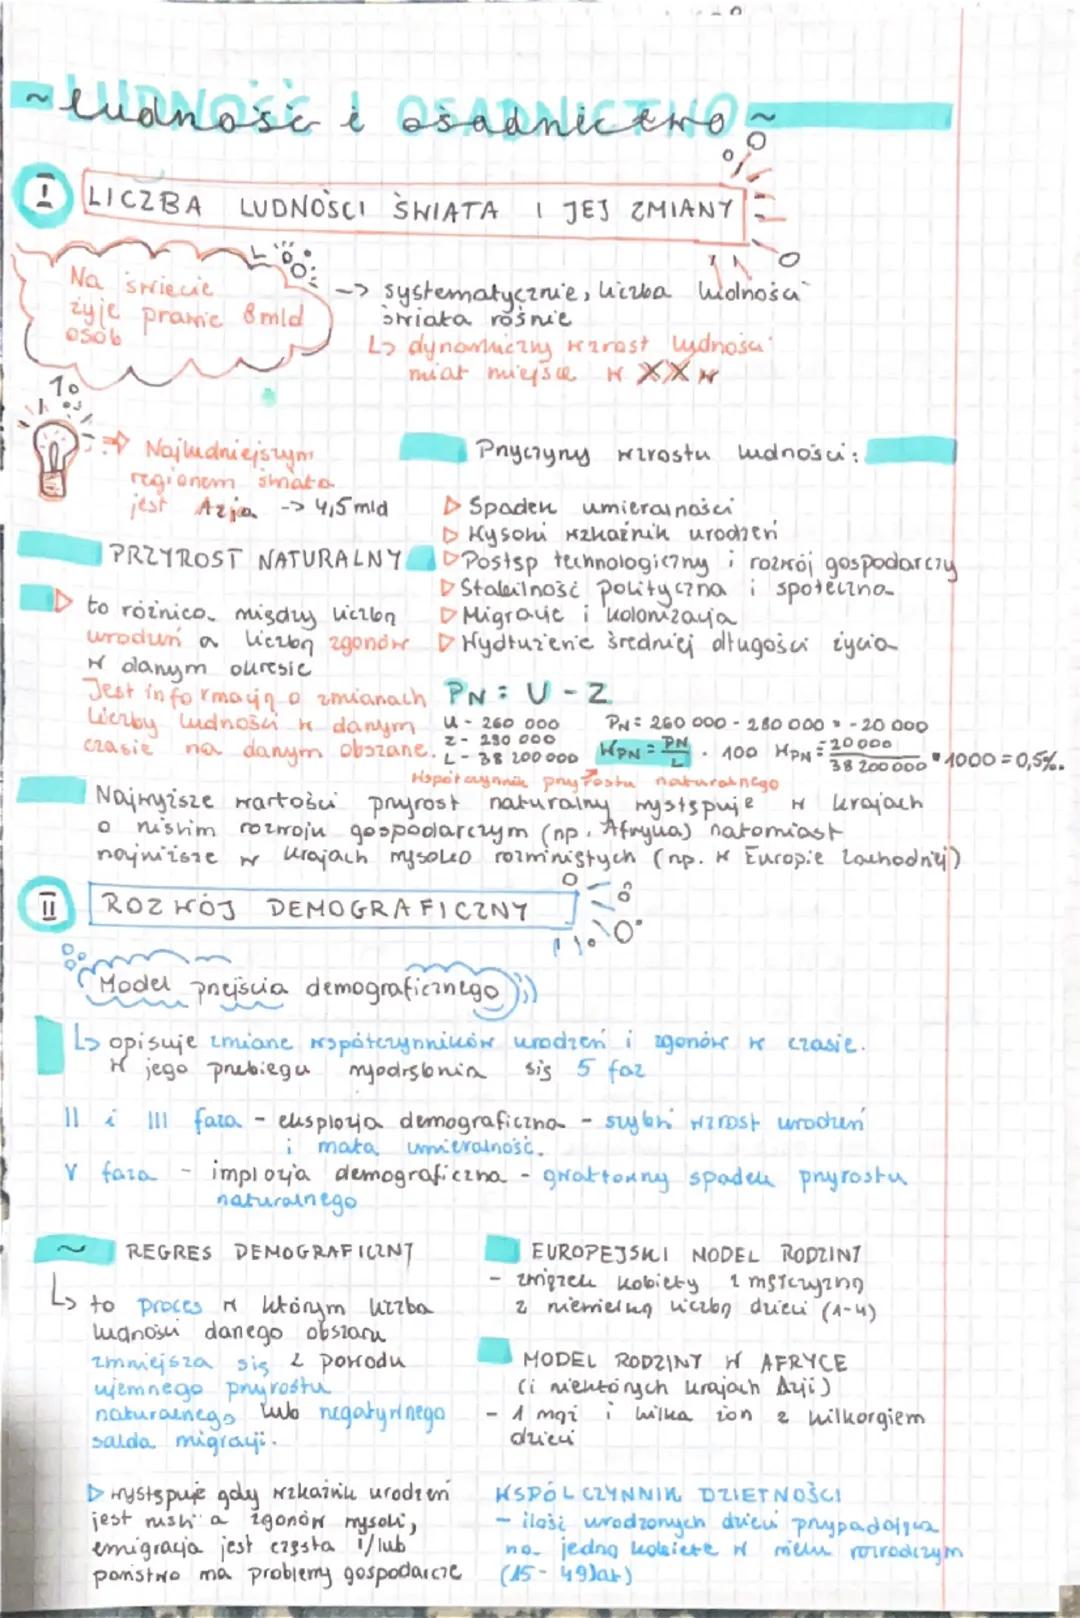 ~ ludność i osadnictwo ~
I LICZBA LUDNOŚCI ŚWIATA I JEJ ZMIANY
Na świecie
żyje prawie 8 mld
osób
-> systematycznie, liczba ludności
świata rośnie
↳ dynamiczny wzrost ludności
miał miejsce w XX w
⇒ Najludniejszym
regionem świata
jest Azja -> 4,5 mld
Przyczyny wzrostu ludności:
▷ Spadek umieralności
▷ Wysoki wskaźnik urodzeń
▷ Postęp technologiczny i rozwój gospodarczy
▷ Stabilność polityczna i społeczna
▷ Migracje i kolonizacja
▷ Wydłużenie średniej długości życia
PRZYROST NATURALNY
▷ to różnica między liczbą
urodzeń a liczbą zgonów
w danym okresie
Jest informacją o zmianach
liczby ludności w danym
czasie na danym obszarze.
PN = U - Z
U - 260 000
Z - 280 000
L - 38 200 000
PN = 260 000 - 280 000 = -20 000
WPN = PN/L · 100 WPN = -20 000/38 200 000 · 1000 = 0,5‰
Współczynnik przyrostu naturalnego
Najwyższe wartości przyrost naturalny występuje w krajach
o niskim rozwoju gospodarczym (np. Afryka) natomiast
najniższe w krajach wysoko rozwiniętych (np. w Europie Zachodniej)
II ROZWÓJ DEMOGRAFICZNY
Model przejścia demograficznego
↳ opisuje zmianę współczynników urodzeń i zgonów w czasie.
W jego przebiegu wyodrębnia się 5 faz
II i III faza - eksplozja demograficzna - szybki wzrost urodzeń
i mała umieralność.
V faza - implozja demograficzna - gwałtowny spadek przyrostu
naturalnego
~ REGRES DEMOGRAFICZNY
↳ to proces w którym liczba
ludności danego obszaru
zmniejsza się z powodu
ujemnego przyrostu
naturalnego lub negatywnego
salda migracji.
▷ występuje gdy wskaźnik urodzeń
jest niski a zgonów wysoki,
emigracja jest częsta i/lub
państwo ma problemy gospodarcze
EUROPEJSKI MODEL RODZINY
- związek kobiety z mężczyzną
z niewielką liczbą dzieci (1-4)
MODEL RODZINY W AFRYCE
(i niektórych krajach Azji)
- 1 mąż i kilka żon z kilkorgiem
dzieci
WSPÓŁCZYNNIK DZIETNOŚCI
- ilość urodzonych dzieci przypadająca
na jedną kobietę w wieku rozrodczym
(15-49 lat)